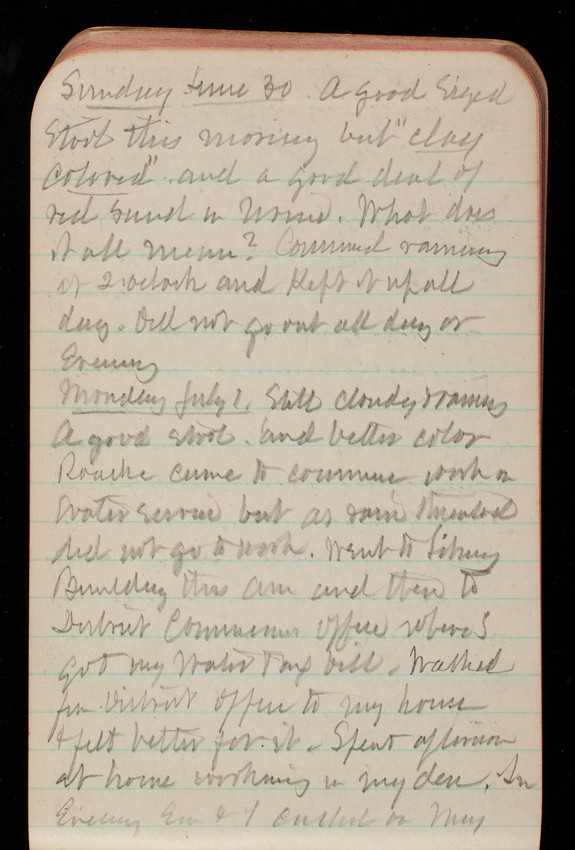 Sunday June 30 A good sized
stool this morning but "clay
colored" and a good deal of
red sand in Urine. What does
it all mean? Commenced raining
at 2 oclock and kept it up all
day. Did not go out all day or
Evening
Monday July 1. Still cloudy & raining
A good stool. and better color
Roache came to commence work on
Water service but as rain threatened
did not go to work. Went to Library
Building this am and then to
District Commissioners Office where I
got my Water Tax bill. Walked
from District Office to my house
& felt better for it. Spent afternoon
at home working in my den. In
Evening Em & I called on May